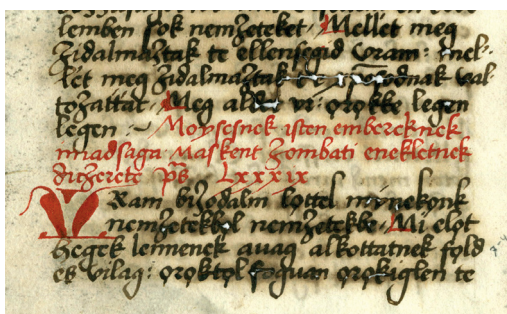 lemben sok nemzeteket Mellet meg
zidalmaztak te ellensegid vram: mel-
let meg zidalmaztak te odnak val-
tozattat Meg aldot vr ọrọkke legen
legen :~ Moysesnek isten embereknek
imadsaga Maskent zombati enekletnek
dizerete ps Lxxxix
VRam bizodalm lọttel mynekọnk
nemzetekbọl nemzetekbe. Mi elọt
hegek lennenek auag alkottatnek fọld
es vilag: ọrọktọl foguan ọrọkiglen te